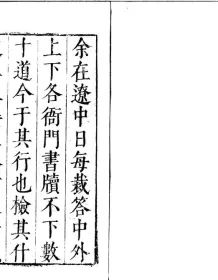 余在遼中日每裁答中外
上下各衙門書牘不下數
十道今于其行也檢其什